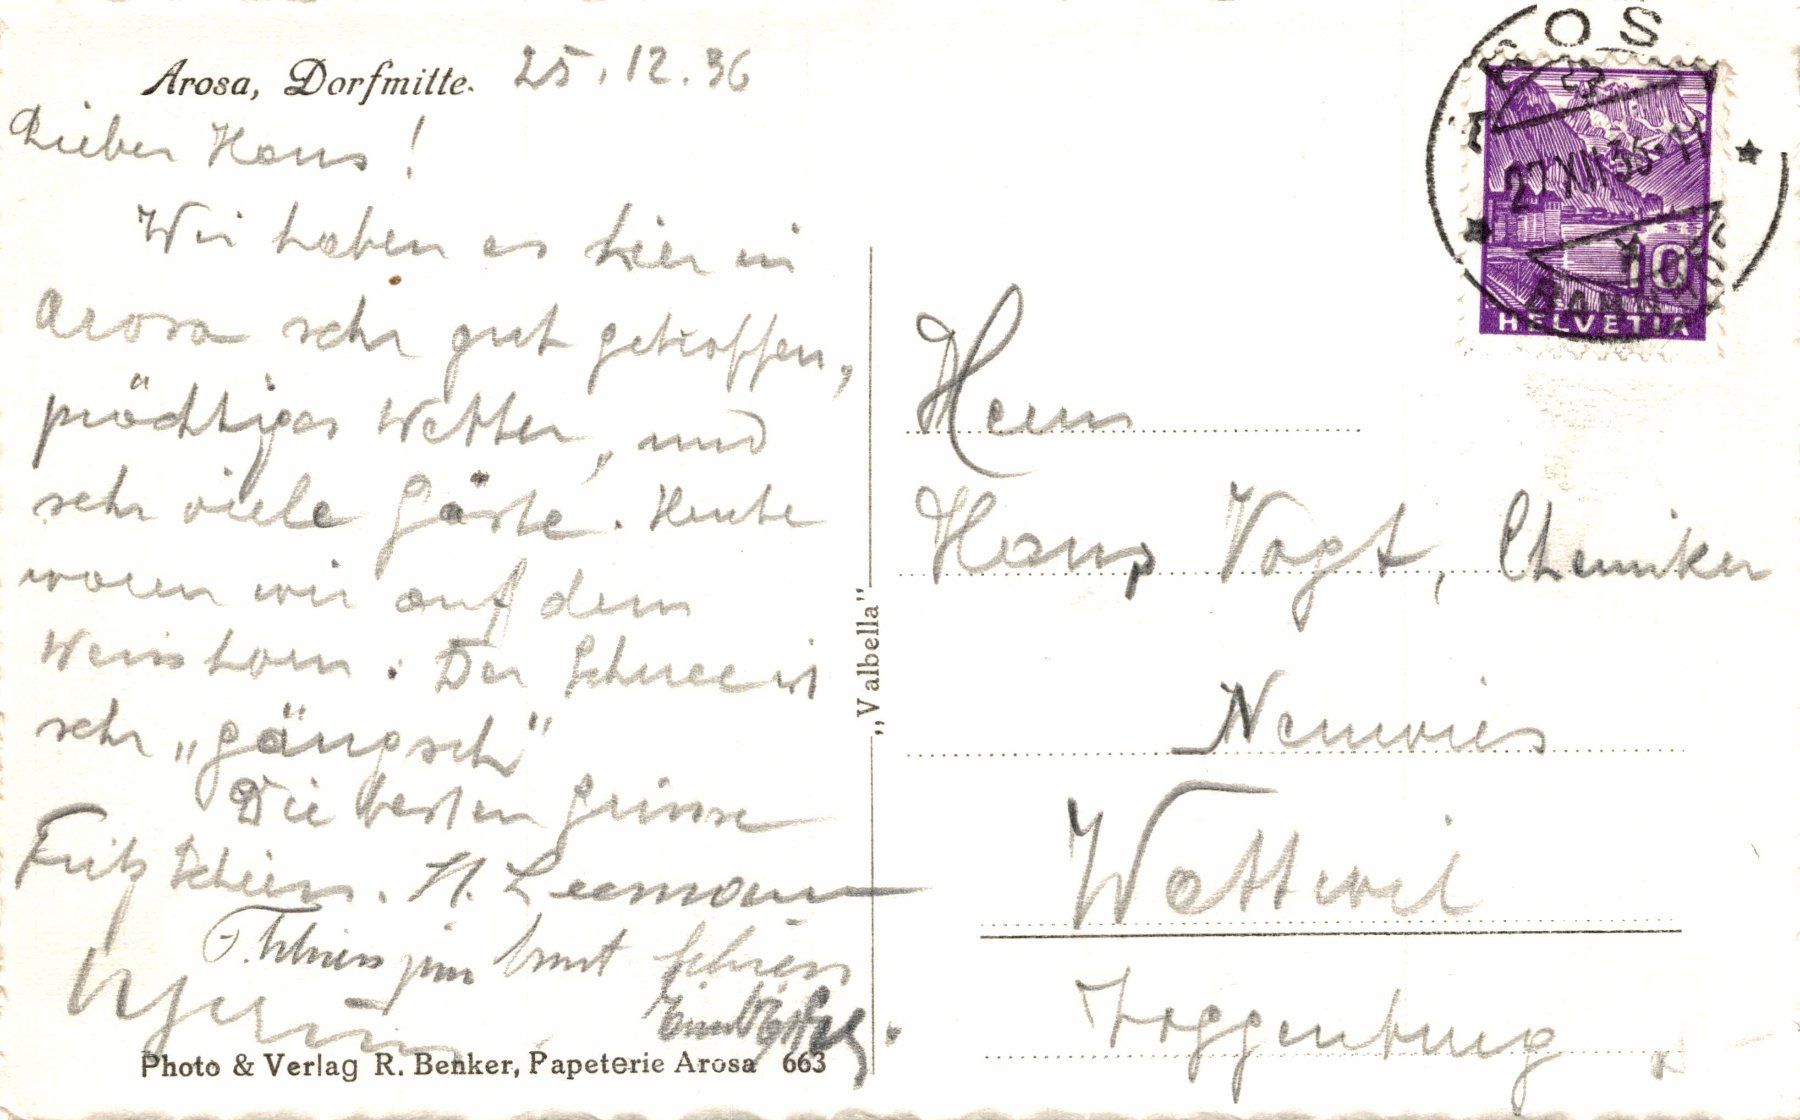 Arosa, Dorfmitte.
25.12.36
Lieber Hans!
Wir haben es hier in
Arosa sehr gut getroffen,
prächtiges Wetter, und
sehr viele Gäste. Heute
waren wir auf dem
Weisshorn. Der Schnee ist
sehr „gängsch"
Die besten Grüsse
Fritz H. Leemann
jun Ernst
Photo & Verlag R. Benker, Papeterie Arosa 663
„Valbella"
27 XII 35-11
10
HELVETIA
Herrn
Hans Vogt, Chemiker
Neuwies
Wattwil
Toggenburg